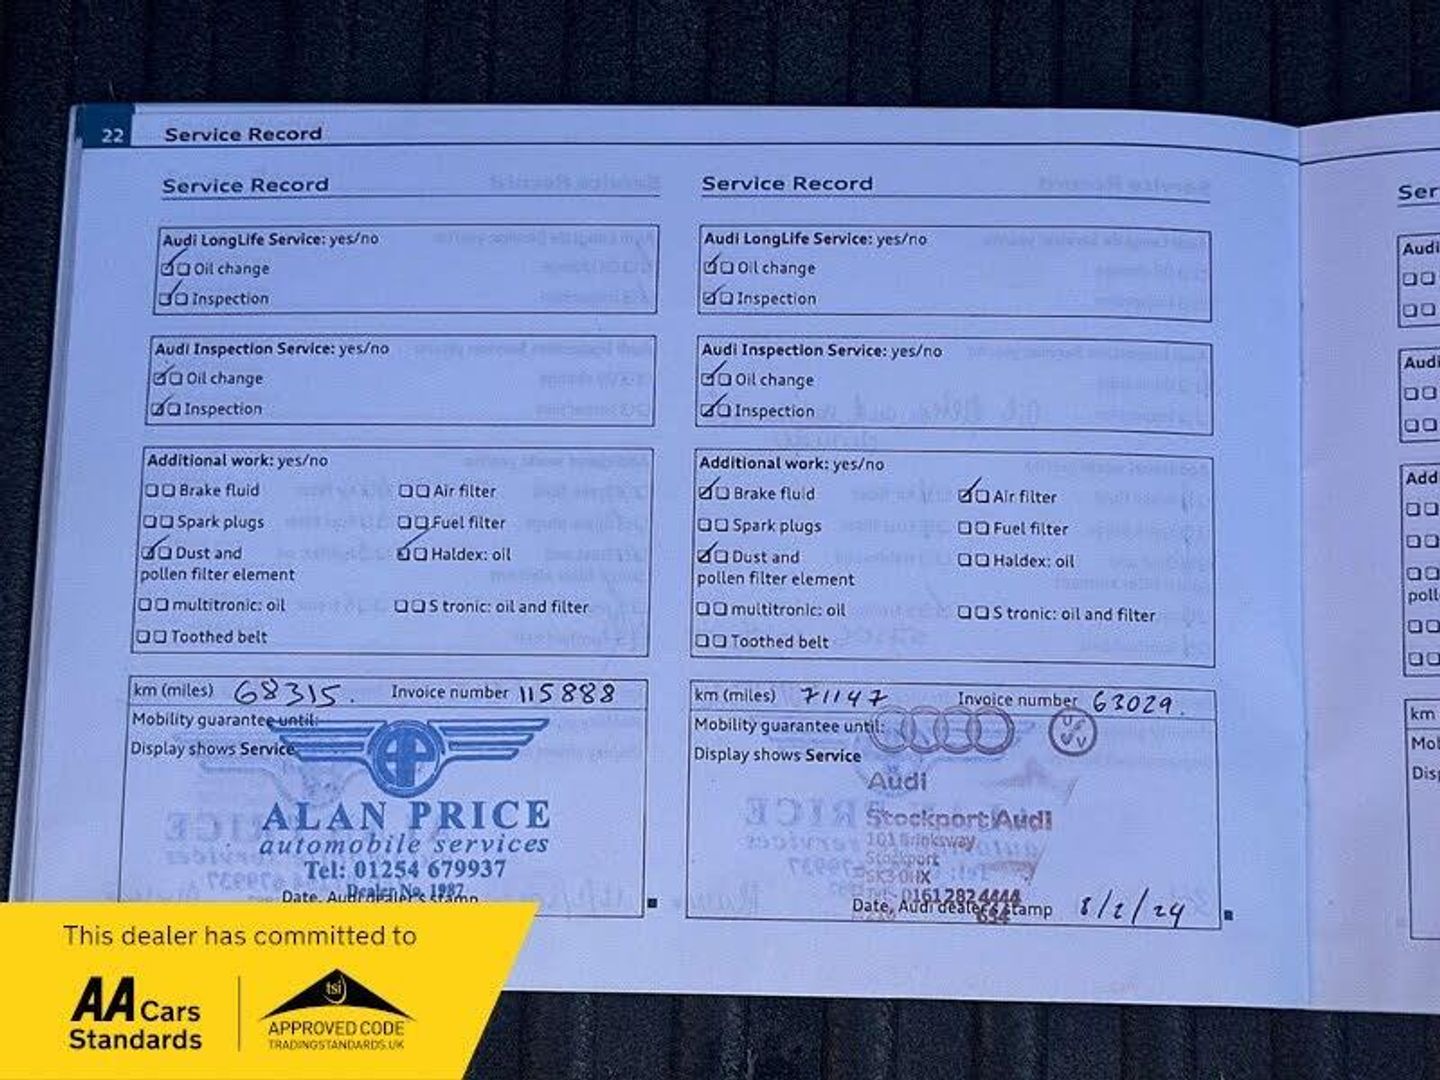 22 Service Record
Service Record
Audi LongLife Service: yes/no
Oil change
Inspection
Audi Inspection Service: yes/no
Oil change
Inspection
Additional work: yes/no
Brake fluid Air filter
Spark plugs Fuel filter
Dust and Haldex: oil
pollen filter element
multitronic: oil S tronic: oil and filter
Toothed belt
km (miles) 68315. Invoice number 115888
Mobility guarantee until:
Display shows Service
AP
ALAN PRICE
automobile services
Tel: 01254 679937
Dealer No. 1987
Date, Audi dealer's stamp
Service Record
Audi LongLife Service: yes/no
Oil change
Inspection
Audi Inspection Service: yes/no
Oil change
Inspection
Additional work: yes/no
Brake fluid Air filter
Spark plugs Fuel filter
Dust and Haldex: oil
pollen filter element
multitronic: oil S tronic: oil and filter
Toothed belt
km (miles) 71147 Invoice number 63029.
Mobility guarantee until:
Display shows Service
Audi
Stockport Audi
101 Brinksway
Stockport
SK3 0HX
0161 282 4444
Date, Audi dealer's stamp 8/2/24
Ser
Audi
Audi
Add
poll
km
Mob
Disp
This dealer has committed to
AA Cars
Standards
tsi
APPROVED CODE
TRADINGSTANDARDS.UK